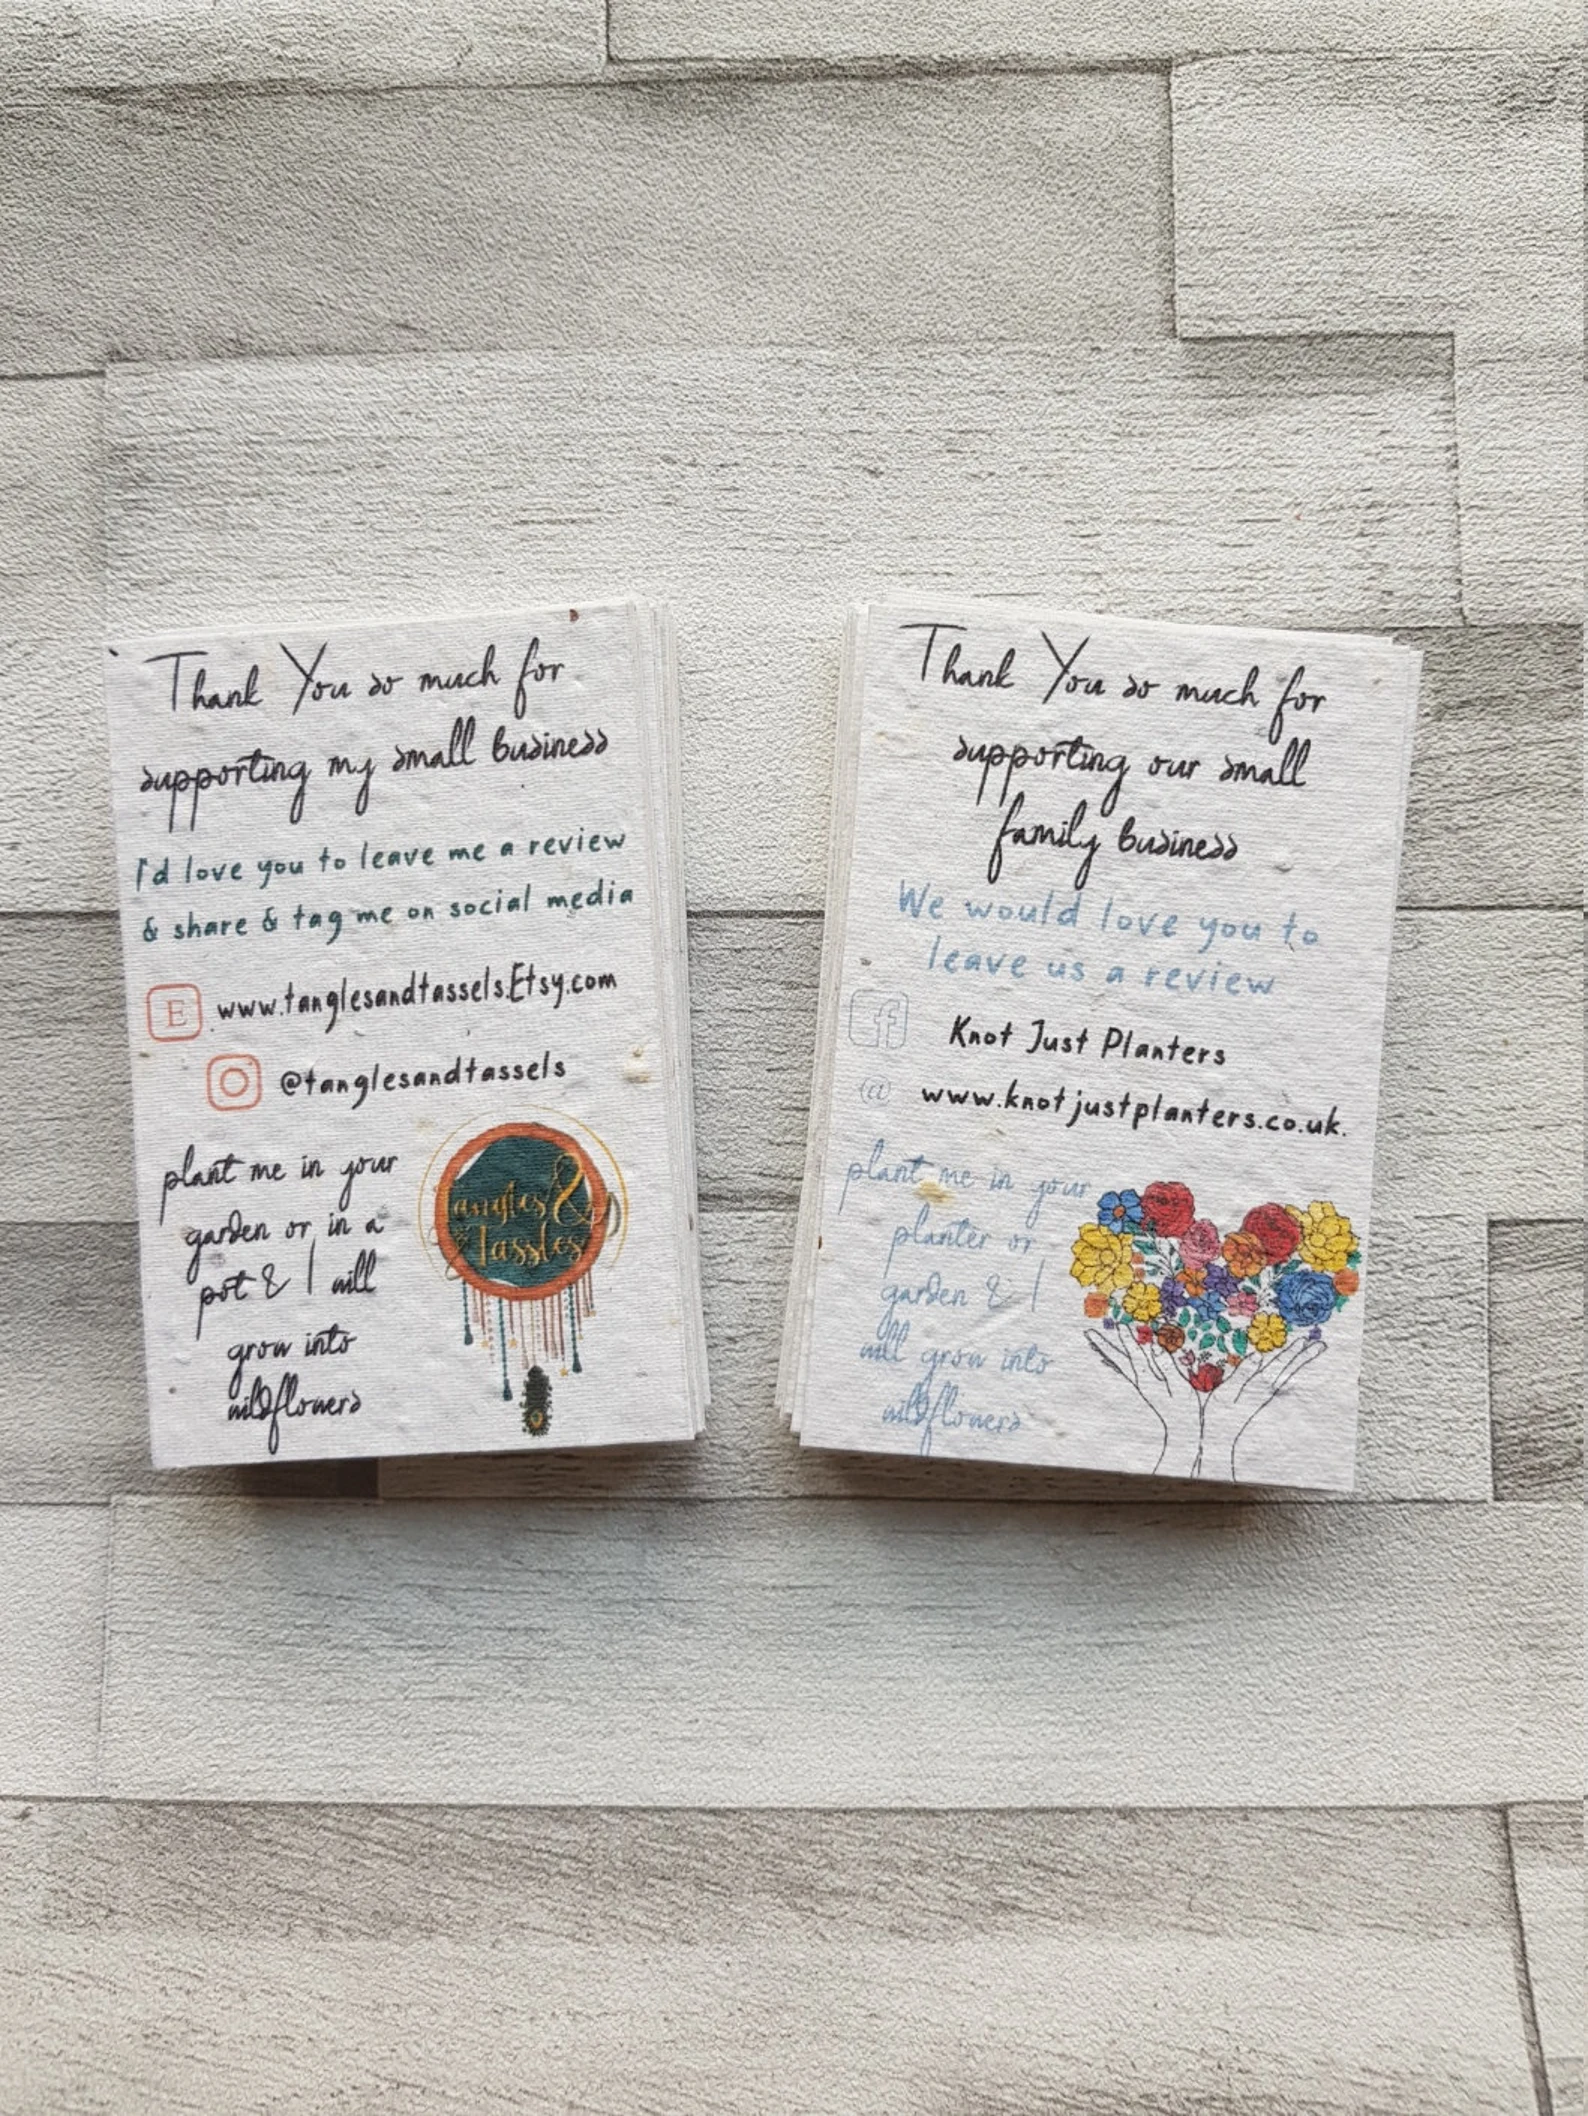 Thank You so much for
supporting my small business
I'd love you to leave me a review
& share & tag me on social media
E www.tanglesandtassels.Etsy.com
@tanglesandtassels
plant me in your
garden or in a
pot & I will
grow into
wildflowers
Tangles &
Tassels
Thank You so much for
supporting our small
family business
We would love you to
leave us a review
f Knot Just Planters
@ www.knotjustplanters.co.uk.
plant me in your
planter or
garden & I
will grow into
wildflowers